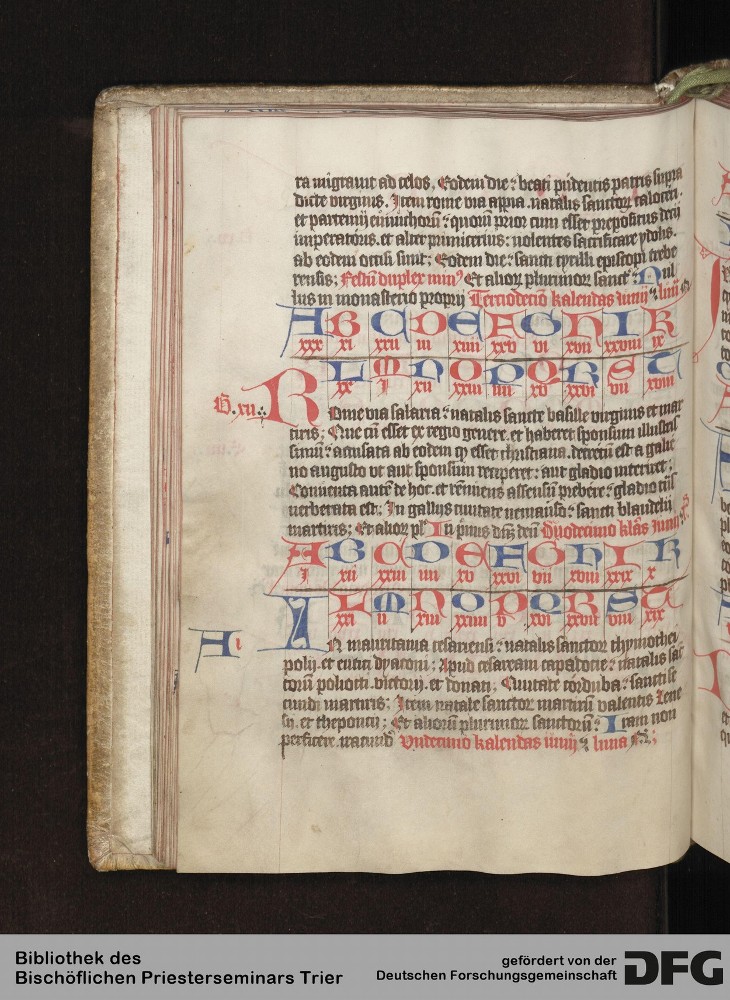 ra migrauit ad celos. Eodem die: beati pudentis patris supra
dicte virginis. Item rome via appia. natalis sanctorum caloceri.
et partemij eunuchorum: quorum prior cum esset prepositus decij
imperatoris. et alter primicerius: nolentes sacrificare ydolis.
ab eodem occisi sunt; Eodem die: sancti cyrilli episcopi trebe
rensis; Festum duplex minus Et aliorum plurimorum sanctorum: Nul
lus in monasterio proprij Tercio decimo kalendas iunij: luna
A B C D E F G H I K
xxx xi xxii iii xiiii xxv vi xvii xxviii ix
L M N O P Q R S T
xx i xii xxiii iiii xv xxvi vii xviii
B. xii. Rome via salaria: natalis sancte basille virginis et mar
tiris; Que cum esset ex regio genere. et haberet sponsum illustris
simum: accusata ab eodem quod esset christiana. decretum est a galie
no augusto vt aut sponsum reciperet: aut gladio interiret;
Conuenta autem de hoc. et renuens assensum prebere: gladio
uerberata est; In gallijs ciuitate nemauso: sancti blaudelij
martiris; Et aliorum Duodecimo kalendas iunij:
A B C D E F G H I K
i xii xxiii iiii xv xxvi vii xviii xxix x
L M N O P Q R S T
xxi ii xiii xxiiii v xvi xxvii viii xix
A i In mauritania cesariensi: natalis sanctorum thymothei
polij. et euticij dyaconi; Apud cesaream capadocie: natalis sanc
torum poliocti. victorij. et donati; Ciuitate corduba: sancti se
cundi martiris; Item natale sanctorum martirum valentis
et theponcij; Et aliorum plurimorum sanctorum: Iram non
perficere. iracundie Vndecimo kalendas iunij: luna
Bibliothek des
Bischöflichen Priesterseminars Trier
gefördert von der
Deutschen Forschungsgemeinschaft
DFG